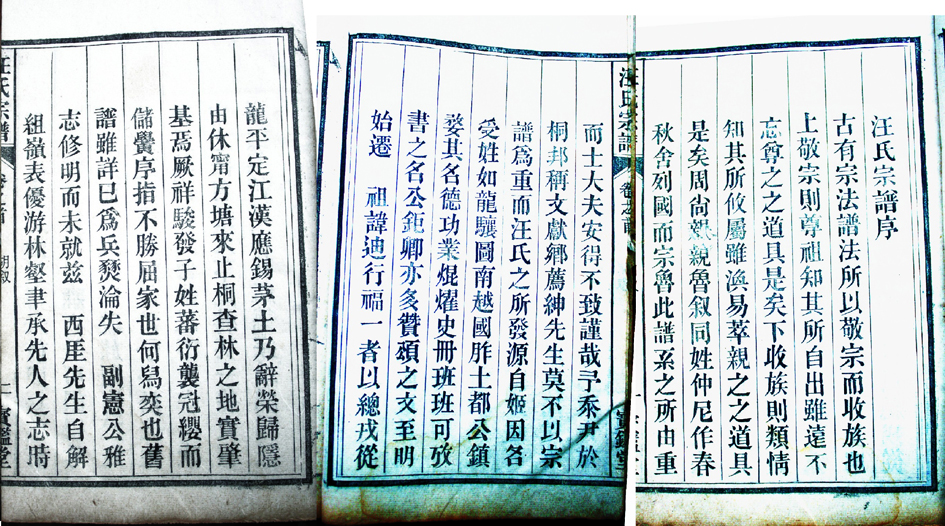 汪氏宗譜序
古有宗法譜法所以敬宗而收族也
上敬宗則尊祖知其所自出雖遠不
忘尊之之道具是矣下收族則類情
知其所攸屬雖渙易萃親之之道具
是矣周尙親親魯叙同姓仲尼作春
秋舍列國而宗魯此譜系之所由重
汪氏宗譜
卷之首
而士大夫安得不致謹哉予忝尹於
桐邦稱文獻鄉薦紳先生莫不以宗
譜爲重而汪氏之所發源自姬因名
受姓如龍驤圖南越國胙土都公鎮
婺其名德功業焜燿史冊班班可攷
書之名公鉅卿亦多贊頌之文至明
始遷 祖諱迪行福一者以總戎從
實鑑堂
龍平定江漢應錫茅土乃辭榮歸隱
由休甯方塘來止桐查林之地實肇
基焉厥祥駿發子姓蕃衍襲冠纓而
儲黌序指不勝屈家世何舄奕也舊
譜雖詳已爲兵燹淪失 副憲公雅
志修明而未就玆 西厓先生自解
組嶺表優游林壑聿承先人之志時
汪氏宗譜
卷之首
胡叙
一
實鑑堂